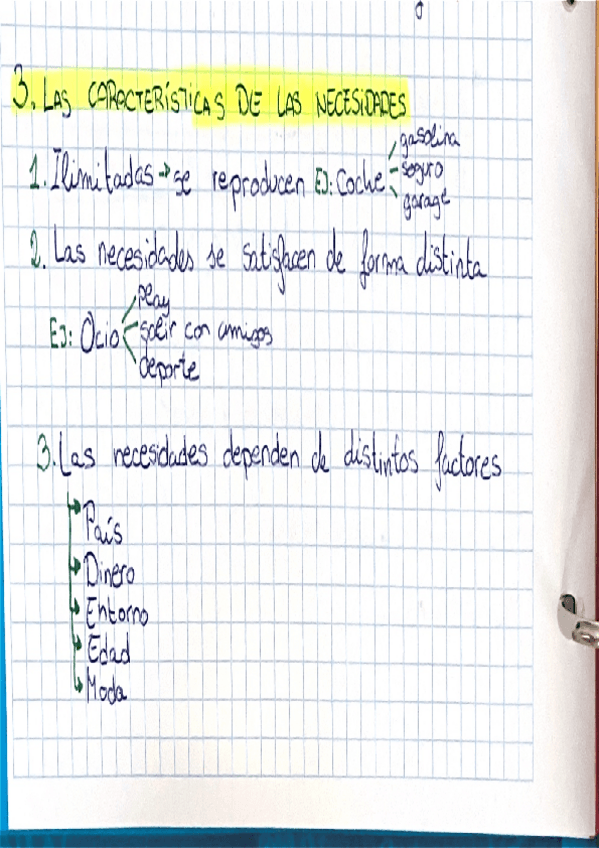 3. LAS CARACTERÍSTICAS DE LAS NECESIDADES
1. Ilimitadas → se reproducen EJ: Coche
gasolina
seguro
garage
2. Las necesidades se satisfacen de forma distinta
EJ: Ocio
play
salir con amigos
deporte
3. Las necesidades dependen de distintos factores
País
Dinero
Entorno
Edad
Moda